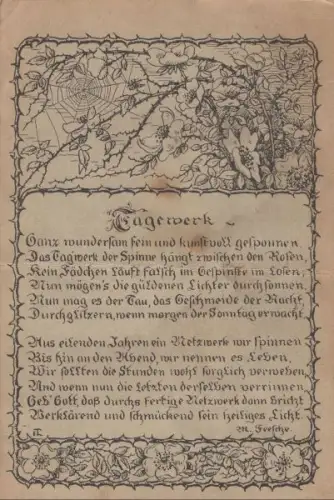 Tagewerk
Ganz wundersam fein und kunstvoll gesponnen
Das Tagwerk der Spinne hängt zwischen den Rosen,
Kein Fädchen läuft falsch im Gespinste im losen,
Nun mögen's die güldenen Lichter durchsonnen.
Nun mag es der Tau, das Geschmeide der Nacht,
Durchglitzern, wenn morgen der Sonntag erwacht.
Aus eilenden Jahren ein Netzwerk wir spinnen
Bis hin an den Abend, wir nennen es Leben.
Wir sollten die Stunden wohl sorglich verweben,
Und wenn nun die letzten derselben verrinnen,
Geb' Gott, daß durchs fertige Netzwerk dann bricht
Verklärend und schmückend sein heiliges Licht.
M. Feesche.